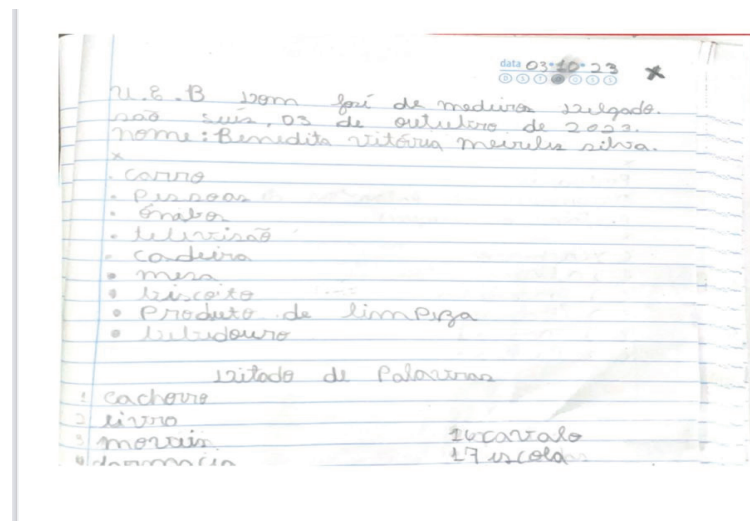 data 03·10·23
U.E.B Dom José de medeiros Delgado.
são Luís, 03 de outubro de 2023.
nome: Benedita vitória meireles silva.
x
. carro
. Pessoas
. ônabos
. televisão
. cadeira
. mesa
. biscoito
. Produto de limpeza
. bebedouro
Ditado de Palavras
1 cachorro
2 livro
3 morais 16 cavalo
4 farmacia 17 escola